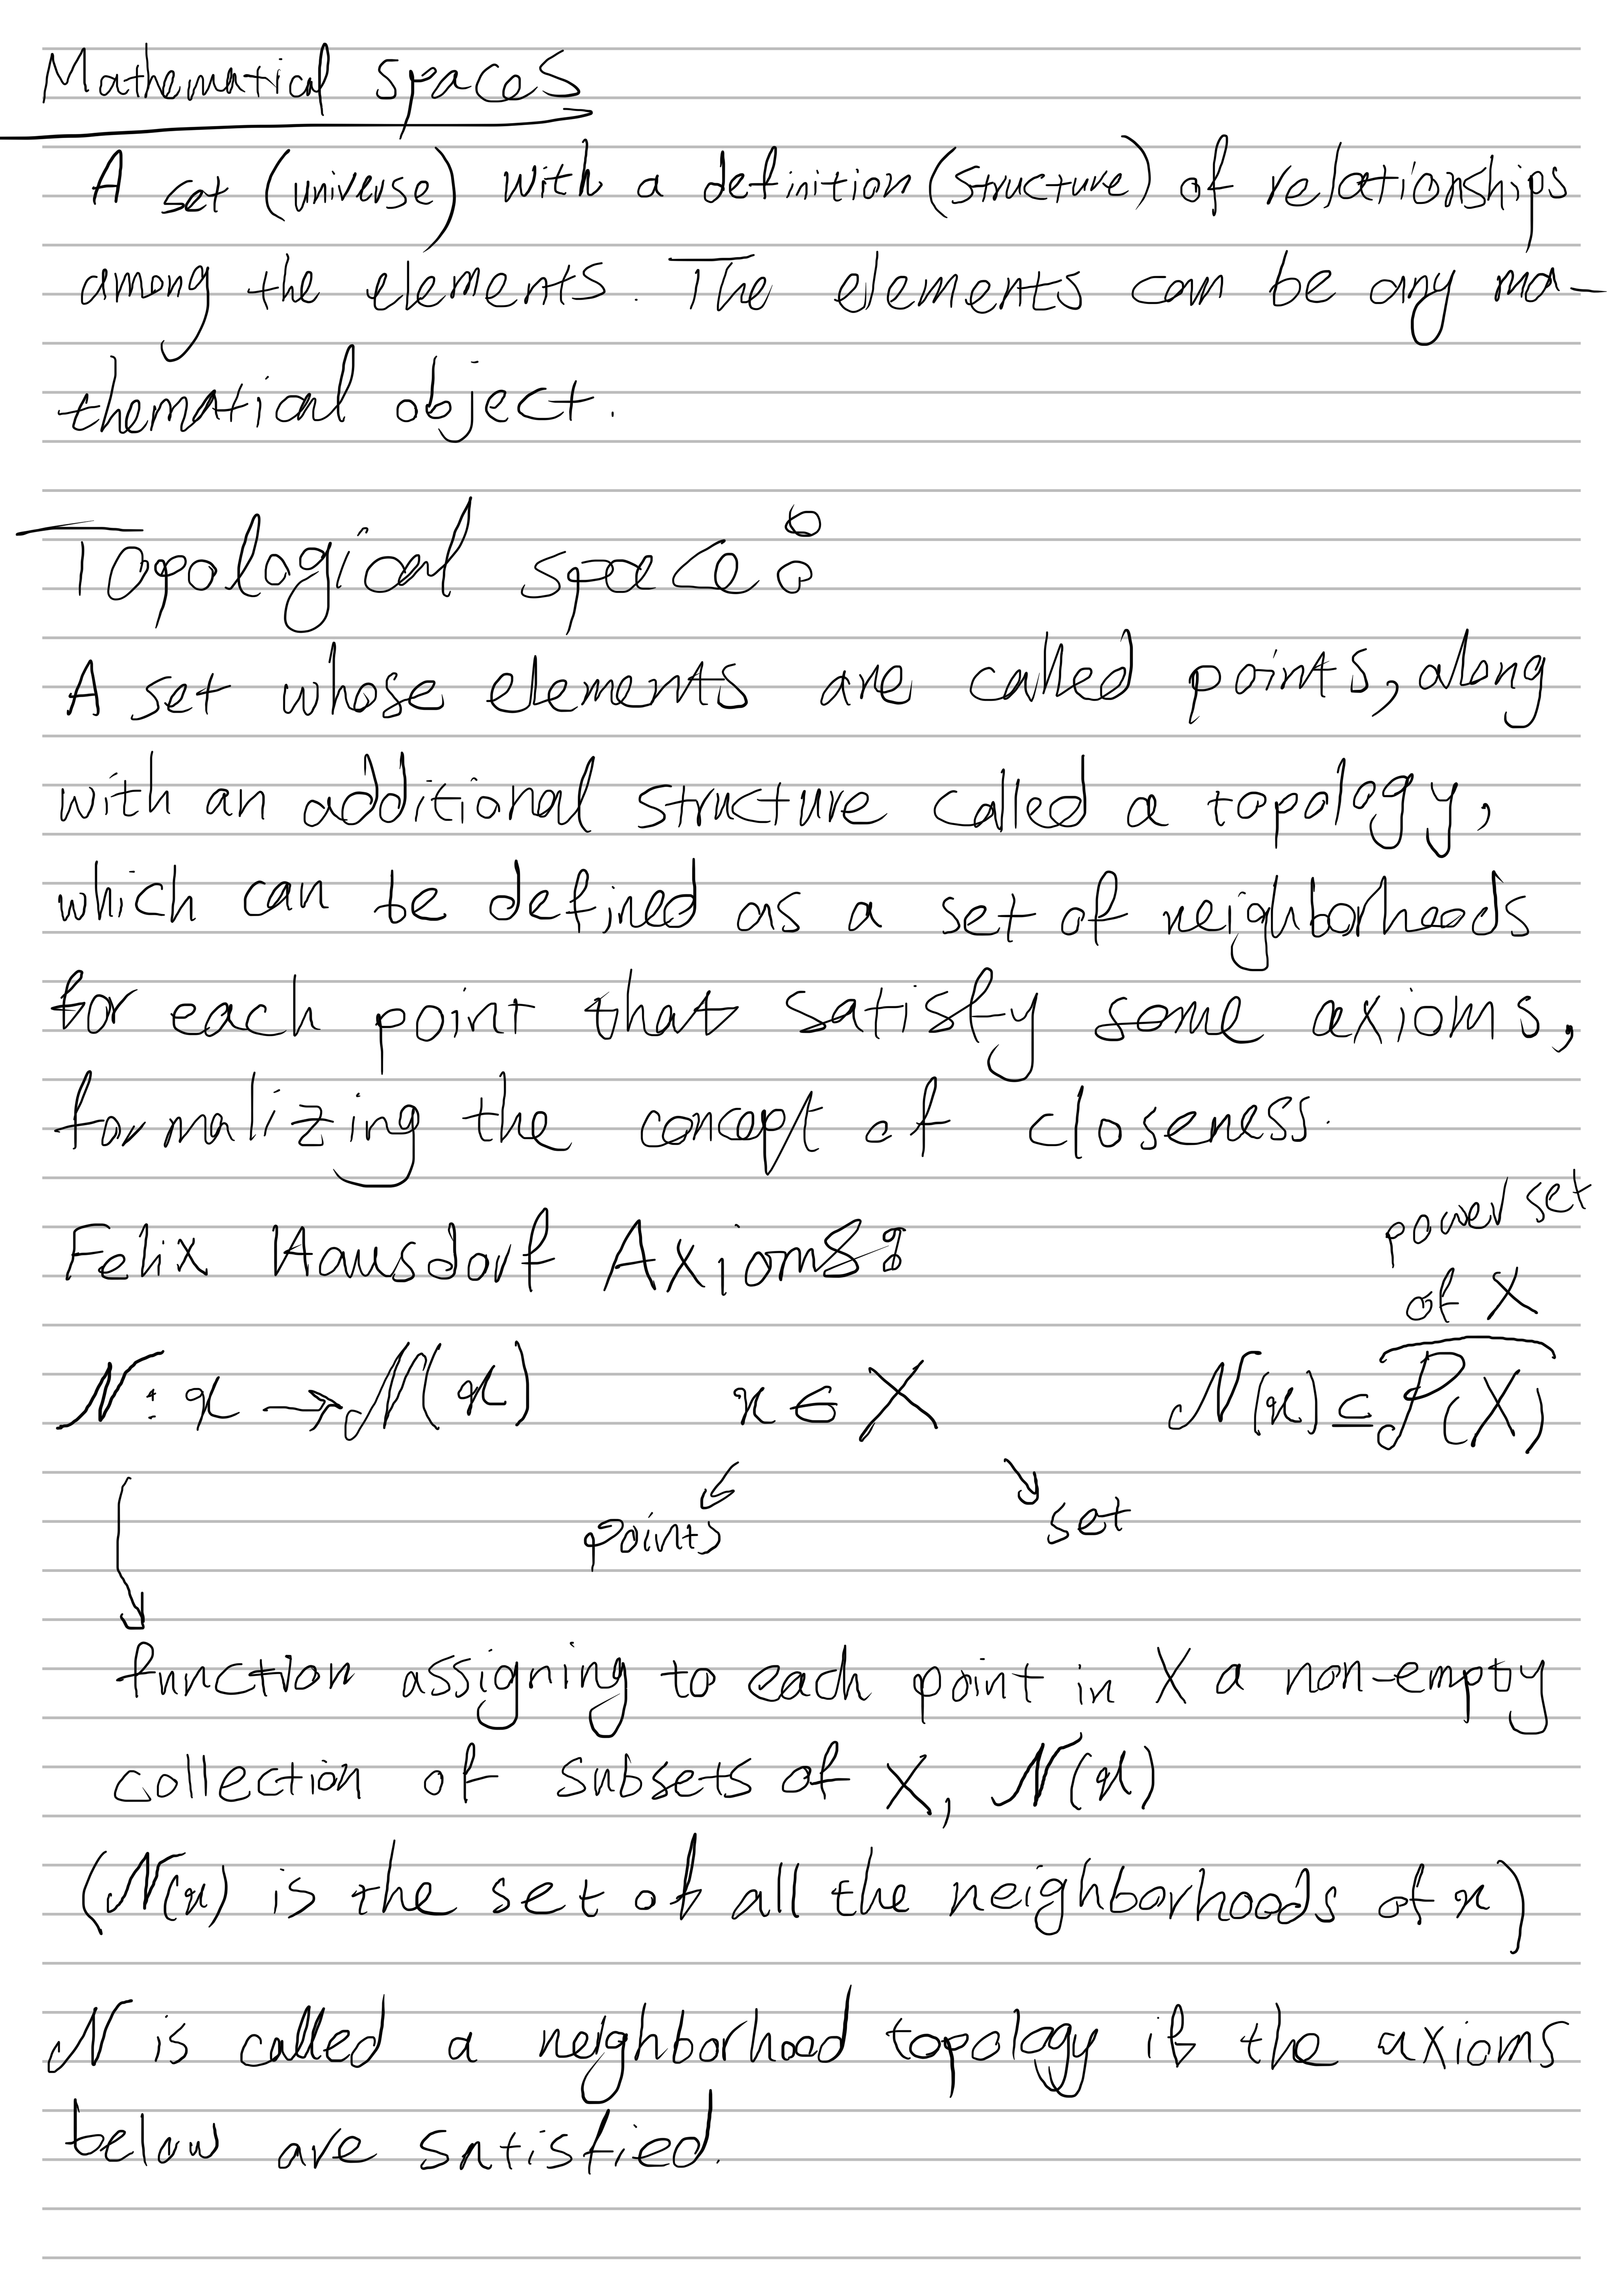 Mathematical spaces
A set (universe) with a definition (structure) of relationships
among the elements. The elements can be any ma-
thematical object.
Topological space:
A set whose elements are called points, along
with an additional structure called a topology,
which can be defined as a set of neighborhoods
for each point that satisfy some axioms,
formalizing the concept of closeness.
power set
Felix Hausdorf Axioms:
of X
N: x → N(x) x ∈ X N(x) ⊆ P(X)
points set
function assigning to each point in X a non-empty
collection of subsets of X, N(x)
(N(x) is the set of all the neighborhoods of x)
N is called a neighborhood topology if the axioms
below are satisfied.